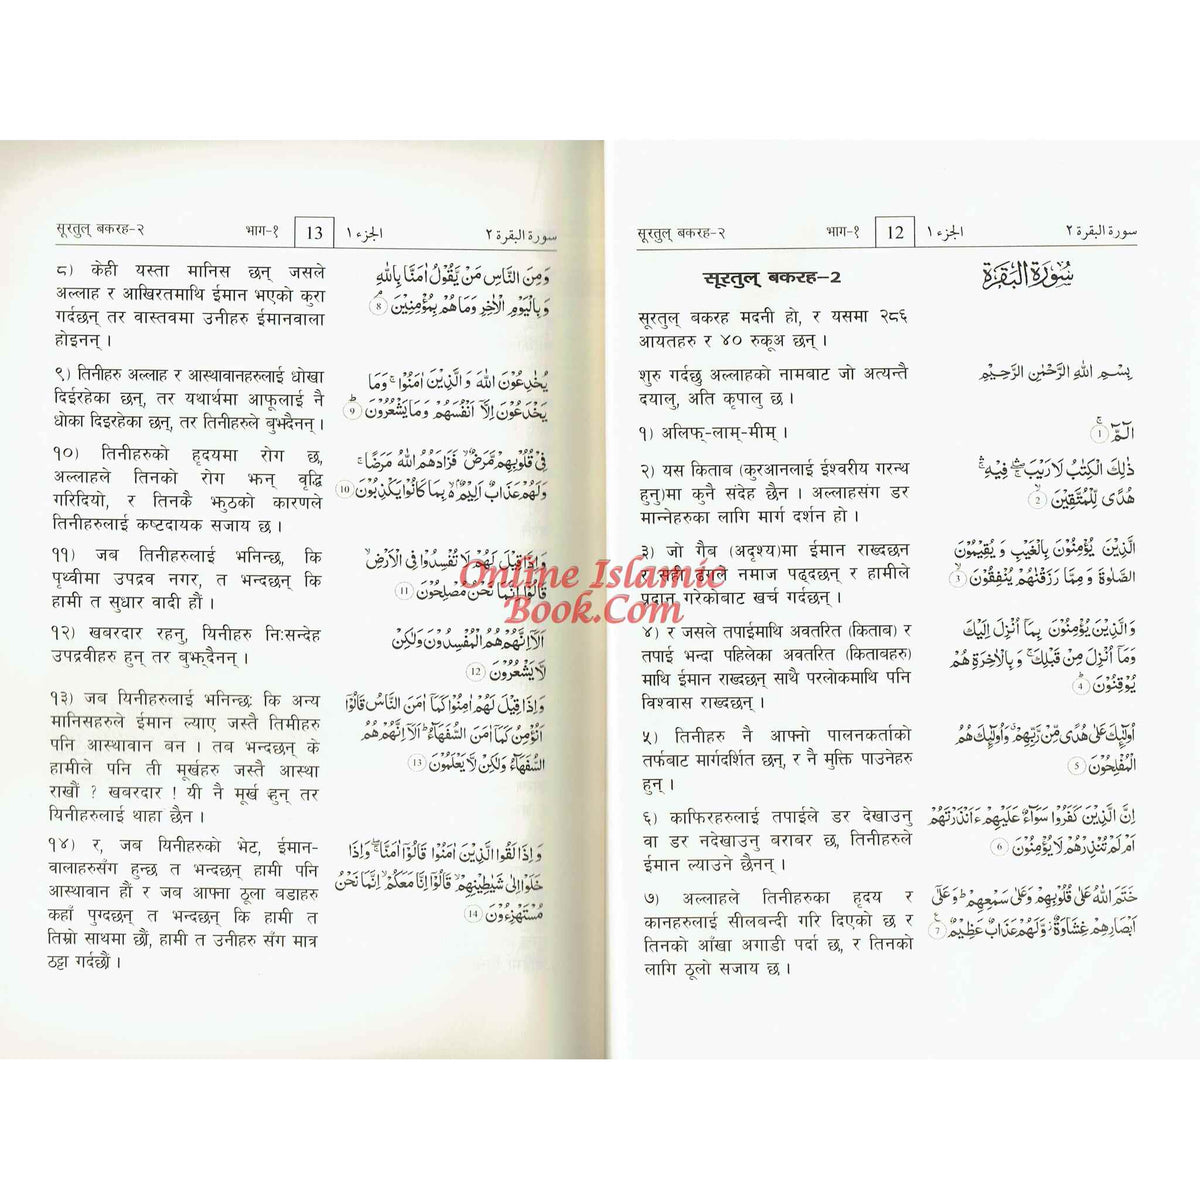 सूरतुल् बकरह-२ भाग-१ 12 الجزء ١ سورة البقرة ٢
सूरतुल् बकरह-2
سُوْرَةُ الْبَقَرَةِ
सूरतुल् बकरह मदनी हो, र यसमा २८६
आयतहरु र ४० रुकूअ छन् ।
शुरु गर्दछु अल्लाहको नामबाट जो अत्यन्तै
दयालु, अति कृपालु छ ।
بِسْمِ اللهِ الرَّحْمٰنِ الرَّحِيْمِ
१) अलिफ्-लाम्-मीम् ।
الٓمّٓ ۚ 1
२) यस किताब (कुरआनलाई ईश्वरीय गरन्थ
हुनु)मा कुनै संदेह छैन । अल्लाहसंग डर
मान्नेहरुका लागि मार्ग दर्शन हो ।
ذٰلِكَ الْكِتٰبُ لَا رَيْبَ ۛ فِيْهِ ۛ
هُدًى لِّلْمُتَّقِيْنَ ۙ 2
३) जो गैब (अदृश्य)मा ईमान राख्दछन
र सही ढंगले नमाज पढ्दछन् र हामीले
प्रदान गरेकोबाट खर्च गर्दछन् ।
الَّذِيْنَ يُؤْمِنُوْنَ بِالْغَيْبِ وَ يُقِيْمُوْنَ
الصَّلٰوةَ وَ مِمَّا رَزَقْنٰهُمْ يُنْفِقُوْنَ ۙ 3
४) र जसले तपाईमाथि अवतरित (किताब) र
तपाई भन्दा पहिलेका अवतरित (किताबहरु)
माथि ईमान राख्दछन् साथै परलोकमाथि पनि
विश्वास राख्दछन् ।
وَالَّذِيْنَ يُؤْمِنُوْنَ بِمَآ اُنْزِلَ اِلَيْكَ
وَمَآ اُنْزِلَ مِنْ قَبْلِكَ ۚ وَ بِالْاٰخِرَةِ هُمْ
يُوْقِنُوْنَ ؕ 4
५) तिनीहरु नै आफ्नो पालनकर्ताको
तर्फबाट मार्गदर्शित छन्, र नै मुक्ति पाउनेहरु
हुन् ।
اُولٰٓئِكَ عَلٰى هُدًى مِّنْ رَّبِّهِمْ ۗ وَاُولٰٓئِكَ هُمُ
الْمُفْلِحُوْنَ 5
६) काफिरहरुलाई तपाईले डर देखाउनु
वा डर नदेखाउनु बराबर छ, तिनीहरुले
ईमान ल्याउने छैनन् ।
اِنَّ الَّذِيْنَ كَفَرُوْا سَوَآءٌ عَلَيْهِمْ ءَاَنْذَرْتَهُمْ
اَمْ لَمْ تُنْذِرْهُمْ لَا يُؤْمِنُوْنَ 6
७) अल्लाहले तिनीहरुका हृदय र
कानहरुलाई सीलबन्दी गरि दिएको छ र
तिनको आँखा अगाडी पर्दा छ, र तिनको
लागि ठूलो सजाय छ ।
خَتَمَ اللهُ عَلٰى قُلُوْبِهِمْ وَعَلٰى سَمْعِهِمْ ؕ وَعَلٰٓى
اَبْصَارِهِمْ غِشَاوَةٌ ۫ وَّلَهُمْ عَذَابٌ عَظِيْمٌ ۟ 7
सूरतुल् बकरह-२ भाग-१ 13 الجزء ١ سورة البقرة ٢
८) केही यस्ता मानिस छन् जसले
अल्लाह र आखिरतमाथि ईमान भएको कुरा
गर्दछन् तर वास्तवमा उनीहरु ईमानवाला
होइनन् ।
وَمِنَ النَّاسِ مَنْ يَّقُوْلُ اٰمَنَّا بِاللهِ
وَ بِالْيَوْمِ الْاٰخِرِ وَمَا هُمْ بِمُؤْمِنِيْنَ ۘ 8
९) तिनीहरु अल्लाह र आस्थावानहरुलाई धोखा
दिईरहेका छन्, तर यथार्थमा आफूलाई नै
धोका दिइरहेका छन्, तर तिनीहरुले बुझ्दैनन् ।
يُخٰدِعُوْنَ اللهَ وَ الَّذِيْنَ اٰمَنُوْا ۚ وَمَا
يَخْدَعُوْنَ اِلَّآ اَنْفُسَهُمْ وَمَا يَشْعُرُوْنَ ؕ 9
१०) तिनीहरुको हृदयमा रोग छ,
अल्लाहले तिनको रोग झन् वृद्धि
गरिदियो, र तिनकै झुठको कारणले
तिनीहरुलाई कष्टदायक सजाय छ ।
فِيْ قُلُوْبِهِمْ مَّرَضٌ ۙ فَزَادَهُمُ اللهُ مَرَضًا ۚ
وَلَهُمْ عَذَابٌ اَلِيْمٌۢ ۙ بِمَا كَانُوْا يَكْذِبُوْنَ 10
११) जब तिनीहरुलाई भनिन्छ, कि
पृथ्वीमा उपद्रव नगर, त भन्दछन् कि
हामी त सुधार वादी हौं ।
وَ اِذَا قِيْلَ لَهُمْ لَا تُفْسِدُوْا فِي الْاَرْضِ ۙ
قَالُوْٓا اِنَّمَا نَحْنُ مُصْلِحُوْنَ 11
१२) खबरदार रहनु, यिनीहरु नि:सन्देह
उपद्रवीहरु हुन् तर बुझ्दैनन् ।
اَلَآ اِنَّهُمْ هُمُ الْمُفْسِدُوْنَ وَلٰكِنْ
لَّا يَشْعُرُوْنَ 12
१३) जब यिनीहरुलाई भनिन्छ: कि अन्य
मानिसहरुले ईमान ल्याए जस्तै तिमीहरु
पनि आस्थावान बन । तब भन्दछन् के
हामीले पनि ती मूर्खहरु जस्तै आस्था
राखौं ? खबरदार ! यी नै मूर्ख हुन् तर
यिनीहरुलाई थाहा छैन ।
وَ اِذَا قِيْلَ لَهُمْ اٰمِنُوْا كَمَآ اٰمَنَ النَّاسُ قَالُوْٓا
اَنُؤْمِنُ كَمَآ اٰمَنَ السُّفَهَآءُ ؕ اَلَآ اِنَّهُمْ هُمُ
السُّفَهَآءُ وَلٰكِنْ لَّا يَعْلَمُوْنَ 13
१४) र, जब यिनीहरुको भेट, ईमान-
वालाहरुसँग हुन्छ त भन्दछन् हामी पनि
आस्थावान हौं र जब आफ्ना ठूला बडाहरु
कहाँ पुग्दछन् त भन्दछन् कि हामी त
तिम्रो साथमा छौं, हामी त उनीहरु सँग मात्र
ठट्टा गर्दछौं ।
وَ اِذَا لَقُوا الَّذِيْنَ اٰمَنُوْا قَالُوْٓا اٰمَنَّا ۖۚ وَ اِذَا
خَلَوْا اِلٰى شَيٰطِيْنِهِمْ ۙ قَالُوْٓا اِنَّا مَعَكُمْ ۙ اِنَّمَا نَحْنُ
مُسْتَهْزِءُوْنَ 14
Online Islamic
Book.Com